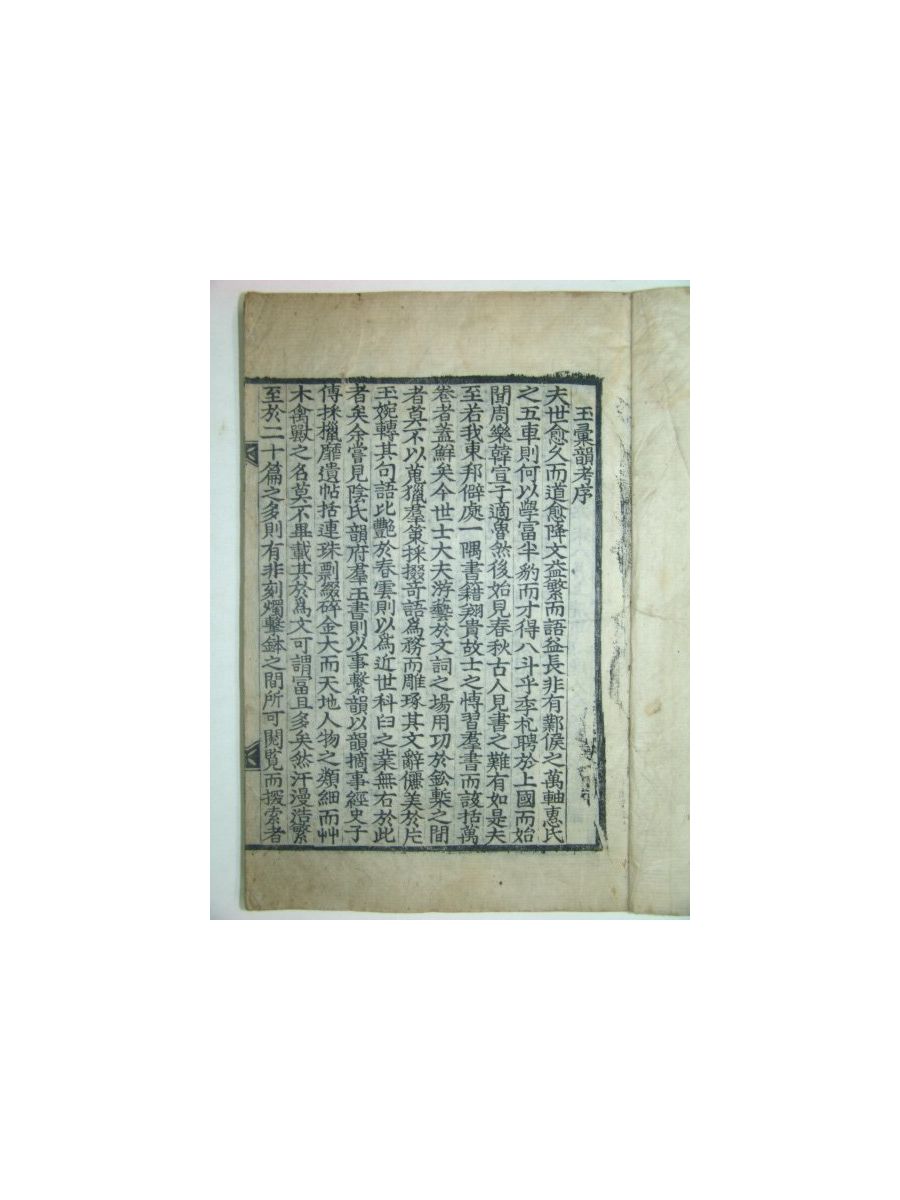 玉彙韻考序
夫世愈久而道愈降文益繁而語益長非有鄴侯之萬軸惠氏
之五車則何以學富半豹而才得八斗乎季札聘於上國而始
聞周樂韓宣子適魯然後始見春秋古人見書之難有如是夫
至若我東邦僻處一隅書籍翔貴故士之博習羣書而該括萬
卷者蓋鮮矣今世士大夫游藝於文詞之場用功於鈆槧之間
者莫不以蒐獵羣策採掇奇語爲務而雕琢其文辭儷美於片
玉婉轉其句語比艶於春雲則以爲近世科臼之業無右於此
者矣余嘗見陰氏韻府羣玉書則以事繫韻以韻摘事經史子
傳採獵靡遺帖括連珠剽綴碎金大而天地人物之類細而艸
木禽獸之名莫不畢載其於爲文可謂富且多矣然汗漫浩繁
至於二十篇之多則有非刻燭擊鉢之間所可閱覧而探索者